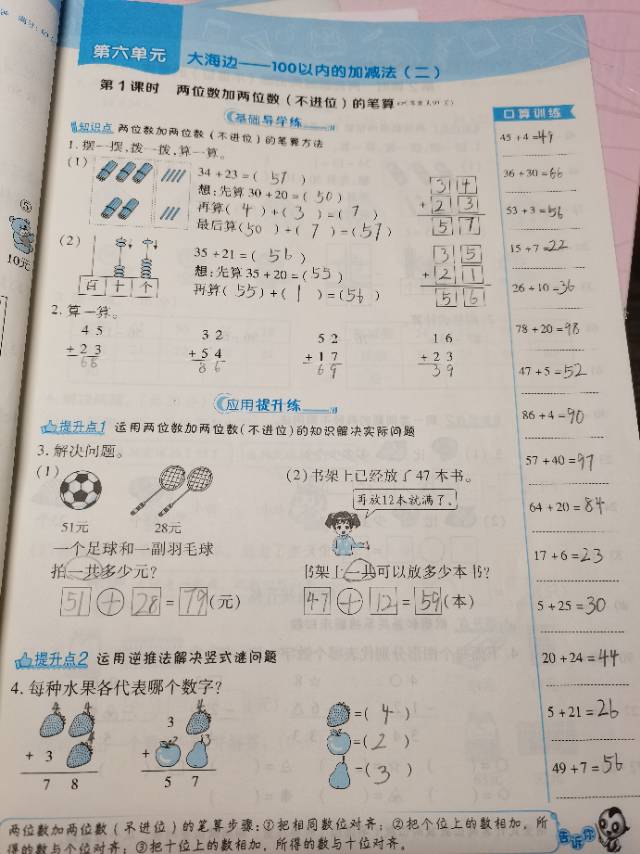 第六单元 大海边——100以内的加减法（二）
第1课时 两位数加两位数（不进位）的笔算
基础导学练
知识点 两位数加两位数（不进位）的笔算方法
1. 摆一摆,拨一拨,算一算。
(1)
34+23=( 57 )
想:先算30+20=( 50 )
再算( 4 )+( 3 )=( 7 )
最后算(50)+( 7 )=(57)
3 4
+ 2 3
5 7
(2)
百 十 个
35+21=( 56 )
想:先算35+20=(55)
再算( 55)+( 1 )=(56 )
3 5
+ 2 1
5 6
2. 算一算。
4 5
+ 2 3
6 8
3 2
+ 5 4
8 6
5 2
+ 1 7
6 9
1 6
+ 2 3
3 9
应用提升练
提升点1 运用两位数加两位数(不进位)的知识解决实际问题
3. 解决问题。
(1)
51元 28元
一个足球和一副羽毛球
拍一共多少元?
51 + 28 = 79 (元)
(2)书架上已经放了47本书。
再放12本就满了。
书架上一共可以放多少本书?
47 + 12 = 59 (本)
提升点2 运用逆推法解决竖式谜问题
4. 每种水果各代表哪个数字?
4 4
+ 3 4
7 8
3 4
+ 2 3
5 7
=( 4 )
=( 2 )
=( 3 )
两位数加两位数（不进位）的笔算步骤:①把相同数位对齐; ②把个位上的数相加, 所
得的数与个位对齐; ③把十位上的数相加, 所得的数与十位对齐。
告诉你
口算训练
45+4=49
36+30=66
53+3=56
15+7=22
26+10=36
78+20=98
47+5=52
86+4=90
57+40=97
64+20=84
17+6=23
5+25=30
20+24=44
5+21=26
49+7=56
⑤
10元